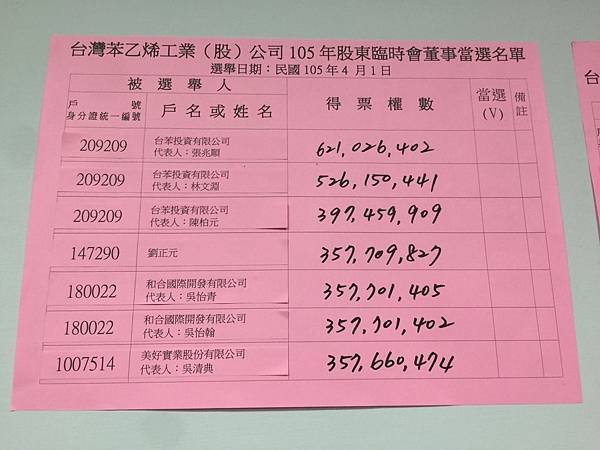 台灣苯乙烯工業（股）公司105年股東臨時會董事當選名單
選舉日期：民國105年4月1日
被選舉人
戶號
身分證統一編號
戶名或姓名
得票權數
當選
(V)
備註
209209
台苯投資有限公司
代表人：張兆順
621,026,402
209209
台苯投資有限公司
代表人：林文淵
526,150,441
209209
台苯投資有限公司
代表人：陳柏元
397,459,909
147290
劉正元
357,709,827
180022
和合國際開發有限公司
代表人：吳怡青
357,701,405
180022
和合國際開發有限公司
代表人：吳怡翰
357,701,402
1007514
美好實業股份有限公司
代表人：吳清典
357,660,474
台